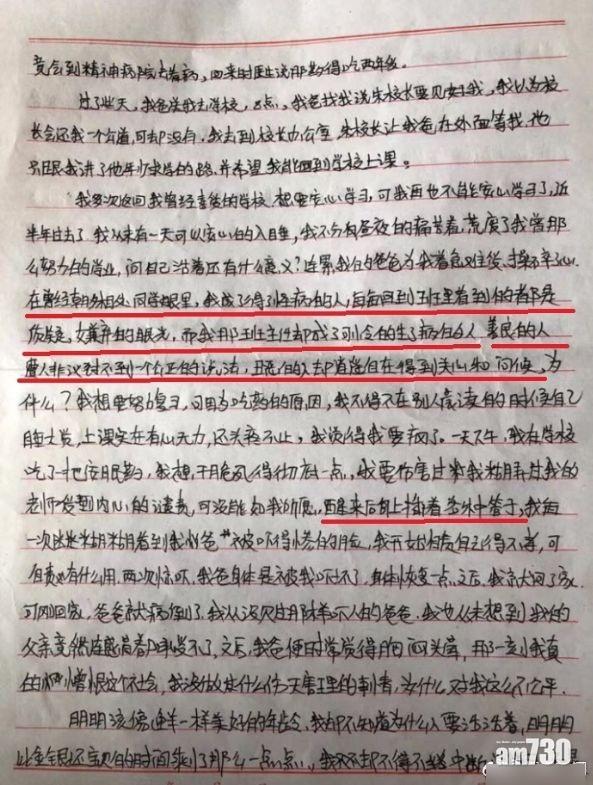 竟会到精神病院去看病，回来时医生说那药得吃两年。
过了些天，我爸送我去学校，8点，我爸找我说朱校长要见好我，我以为校
长会还我一个公道，可却没有，我去到校长办公室，朱校长让我爸在外面等我，他
只跟我讲了他年少求学的路，并希望我能回到学校上课。
我多次返回我曾经喜爱的学校，想要安心学习，可我再也不能安心学习了，近
半年过去了，我从未有一天可以安心的入睡，我不分白昼夜的痛苦着，荒废了我曾那
么努力的学业，问自己活着还有什么意义？连累我的爸爸为我着急难受、操碎了心。
在曾经朝夕相处同学眼里，我成了得了怪病的人，每每回到班里看到的都是
质疑、嫌弃的眼光，而我那班主任却成了可怜的生了病的人，善良的人
遭人非议讨不到一个公正的说法，丑恶的人却逍遥自在得到关心和问候，为
什么？我想要努力复习，可因为吃药的原因，我不得不在别人读书的时候自己
睡大觉，上课实在有心无力，还头疼不止，我觉得我要疯了。一天下午，我在学校
吃了一把安眠药，我想，干脆死得彻底一点，我要伤害过我猥亵过我的
老师受到内心的谴责，可没能如我所愿，醒来后身上插着各种管子，我每
一次迷迷糊糊看到我爸爸被吓得惨白的脸，我开始自责自己得不孝，可
自责也有什么用，两次惊吓，我爸身体是被我吓坏了，身体恢复一点之后，我就出院了，
可刚回家，爸爸就病倒了，我从没见过那样吓人的爸爸，我也从未想到我的
父亲竟然连感冒着都承受不了，之后，我爸便时常觉得胸闷头晕，那一刻我真
的好憎恨这个社会，我没做过什么伤天害理的事情，为什么对我这么不公平。
明明该像花一样美好的年龄，我却不知道为什么人要活着，明明
比金银还宝贵的时间来到了那么一点点，我不得不经中断
am730